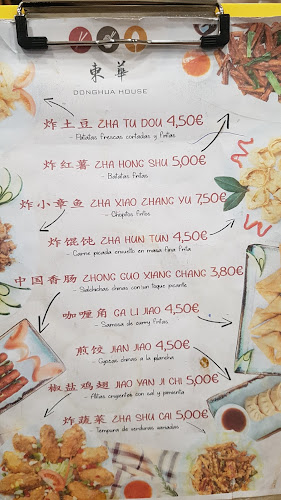 東 華
DONGHUA HOUSE
炸土豆 ZHA TU DOU 4,50€
- Patatas frescas cortadas y fritas
炸红薯 ZHA HONG SHU 5,00€
- Batatas fritas
炸小章鱼 ZHA XIAO ZHANG YU 7,50€
- Chopitos fritos
炸馄饨 ZHA HUN TUN 4,50€
- Carne picada envuelto en masa fina frita
中国香肠 ZHONG GUO XIANG CHANG 3,80€
- Salchichas chinas con un toque picante
咖喱角 GA LI JIAO 4,50€
- Samosa de curry fritas
煎饺 JIAN JIAO 4,50€
- Gyozas chinas a la plancha
椒盐鸡翅 JIAO YAN JI CHI 5,00€
- Alitas crujientes con sal y pimienta
炸蔬菜 ZHA SHU CAI 5,00€
- Tempura de verduras variadas